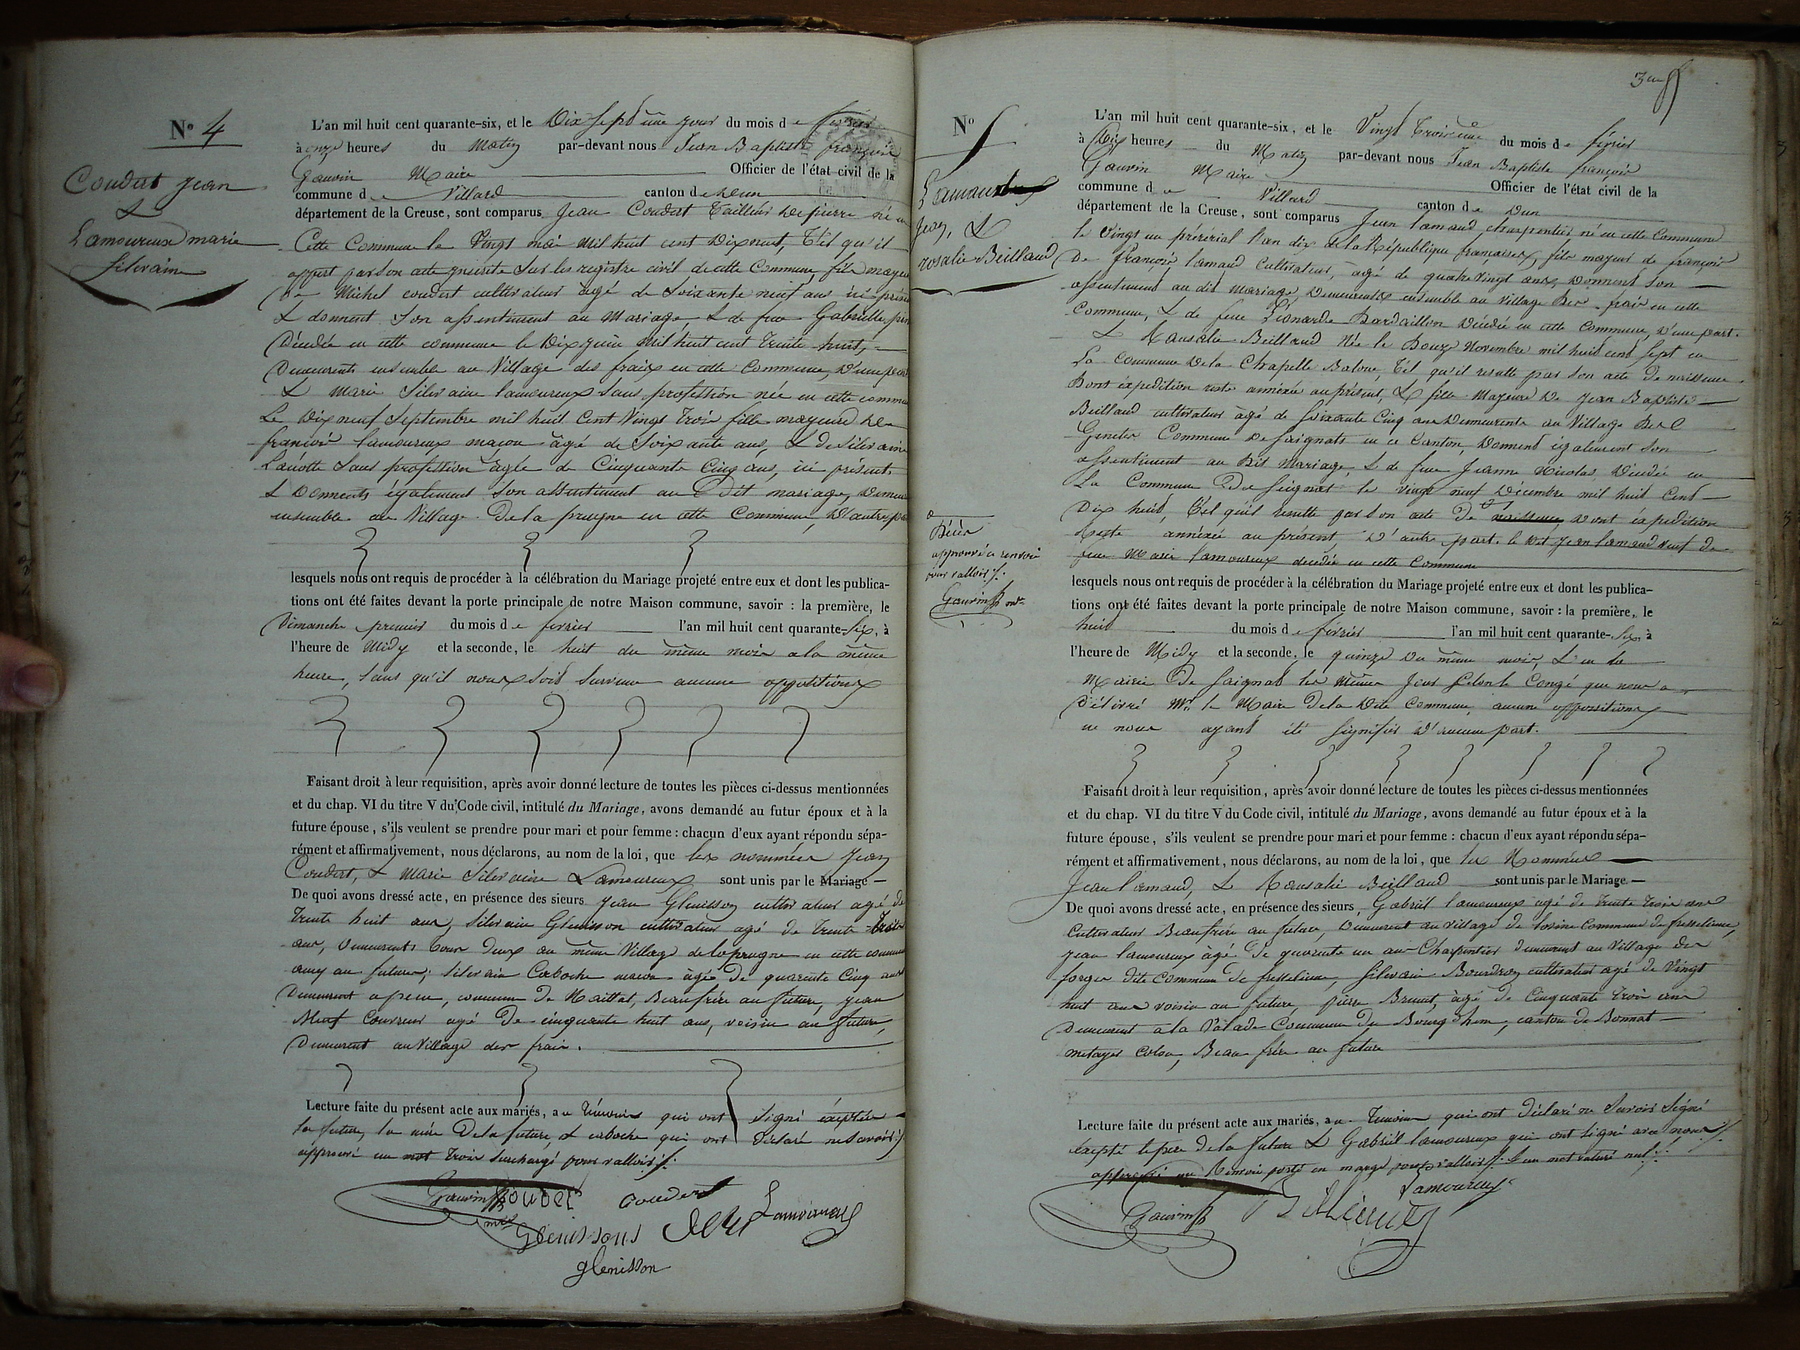 N° 4
Coudert Jean
&
Lamoureux marie
silvaine
L'an mil huit cent quarante-six, et le Dix Sept ême jour du mois de février
à onze heures du Matin par-devant nous Jean Baptiste françois
Gauvin Maire Officier de l'état civil de la
commune de Villard canton de Dun
département de la Creuse, sont comparus Jean Coudert Tailleur de pierre né en
Cette Commune le Vingt mai mil huit cent Dix neuf, Tel qu'il
appert par son acte inscrite sur les registre civil de cette Commune fils majeur
De Michel coudert cultivateur âgé de soixante neuf ans ici présent
& donnent son assentiment au Mariage, & de feue Gabrielle
Décédée en cette commune le Dix juin mil huit cent Trente huit,
Demeurants ensemble au Village des fraix en cette Commune, D'une part
& Marie Silvaine lamoureux sans profession née en cette commune
Le Dix neuf Septembre mil huit Cent Vingt Trois fille majeure de
françois lamoureux maçon âgé de Soixante ans, & de Silvaine
sans profession âgée de Cinquante Cinq ans, ici présents
& Donnents également son assentiment au Dit mariage, Demeurant
ensemble au Village De la prugne en cette Commune, D'autre part
lesquels nous ont requis de procéder à la célébration du Mariage projeté entre eux et dont les publica-
tions ont été faites devant la porte principale de notre Maison commune, savoir : la première, le
Dimanche premier du mois de février l'an mil huit cent quarante-six, à
l'heure de Midy et la seconde, le huit du même mois a la même
heure, sans qu'il nous soit survenu aucune oppositions
Faisant droit à leur requisition, après avoir donné lecture de toutes les pièces ci-dessus mentionnées
et du chap. VI du titre V du Code civil, intitulé du Mariage, avons demandé au futur époux et à la
future épouse, s'ils veulent se prendre pour mari et pour femme : chacun d'eux ayant répondu sépa-
rément et affirmativement, nous déclarons, au nom de la loi, que les nommées Jean
Coudert, & Marie Silvaine Lamoureux sont unis par le Mariage
De quoi avons dressé acte, en présence des sieurs Jean Glenisson cultivateur agé de
Trente huit ans, Silvain Glenisson cultivateur agé de Trente trois
ans, Demeurants tous deux au même Village de laprugne en cette commune
amy au future; Silvain Caboche maçon âgé De quarente Cinq ans
Demeurant a peux, commune De Naillat, Beaufrère au future, Jean
Meuf Couvreur agé De cinquante huit ans, voisin au future,
Demeurent au Village des fraix.
Lecture faite du présent acte aux mariés, au Témoins qui ont signé exeptée
la future, la mère De la future, & caboche qui ont Déclaré ne savoir
approuvé un mot Trois surchargé pour valloir
Gauvin Coudert coudert
maire Glenissons Meuf Lamoureux
glenisson
3eme
N° 5
Lamaud
Jean, &
rosalie Beillaud
L'an mil huit cent quarante-six, et le Vingt Troisième du mois de février
à Dix heures du Matin par-devant nous Jean Baptiste françois
Gauvin Maire Officier de l'état civil de la
commune de Villard canton de Dun
département de la Creuse, sont comparus Jean lamaud charpentier né en cette Commune
le Vingt un prérérial l'an dix de la République française, fils majeur de françois
De françois lamaud Cultivateur, âgé de quatre Vingt ans, Donnent Son
assentiment au dit mariage, Demeurents ensemble au Village Des fraix en cette
Commune, & de feue Léonarde Bardaillon Décédée en cette Commune, D'une part.
& Rausalie Beillaud Née le Douze Novembre mil huit cent sept en
La Commune De la Chapelle Baloue, Tel qu'il resulte par son acte de naissance
Dont expédition reste annéxée au présent, & fille Majeure De Jean Baptiste
Beillaud cultivateur âgé de soixante Cinq ans Demeurente au Village
Genetes Commune De Saignats en ce Canton, Donnend également son
assentiment au Dit Mariage, & de feue Jeanne Nicolas Décédée en
La Commune De Seignat le vingt neuf Décembre mil huit Cent
Dix huit, Tel qu'il resulte par son acte De naissance, Dont éxpedition
Reste annéxée au présent, D'autre part. le Dit Jean lamaud veuf de
feue Marie lamoureux decedée en cette Commune
Décès
approuvé ce renvoi
pour valloir
Gauvin
lesquels nous ont requis de procéder à la célébration du Mariage projeté entre eux et dont les publica-
tions ont été faites devant la porte principale de notre Maison commune, savoir : la première, le
huit du mois de février l'an mil huit cent quarante-six, à
l'heure de Midy et la seconde, le quinze du même mois, & en la
Mairie De Saignat les mêmes Jour selon le Congé que nous a
Délivré Mr le Maire De la Dite Commune, aucune oppositions
ne nous ayant été signifiés D'aucune part.
Faisant droit à leur requisition, après avoir donné lecture de toutes les pièces ci-dessus mentionnées
et du chap. VI du titre V du Code civil, intitulé du Mariage, avons demandé au futur époux et à la
future épouse, s'ils veulent se prendre pour mari et pour femme : chacun d'eux ayant répondu sépa-
rément et affirmativement, nous déclarons, au nom de la loi, que les Nommées
Jean lamaud, & Rausalie Beillaud sont unis par le Mariage
De quoi avons dressé acte, en présence des sieurs Gabriel lamoureux agé de trente trois ans
Cultivateur Beaufrère au future, Demeurent au village de Commune de fresselines,
Jean lamoureux âgé De quarente un ans Charpentier demeurent au Village des
forges dite Commune De fresselines, Silvain Bourdeau cultivateur agé de Vingt
huit ans voisin au future, pierre Brunet, âgé de Cinquante trois ans
Demeurent a la Commune Du Bourg Dhem, canton de Bonnat
metayer colon, Beau frère au future
Lecture faite du présent acte aux mariés, au Temoins qui ont Déclaré ne savoir signé
éxcepté le père de la future & Gabriel lamoureux qui ont signé avec nous
approuvé un Renvoi porté en marge pour valloir & un mot raturé nul
Gauvin Lamoureux